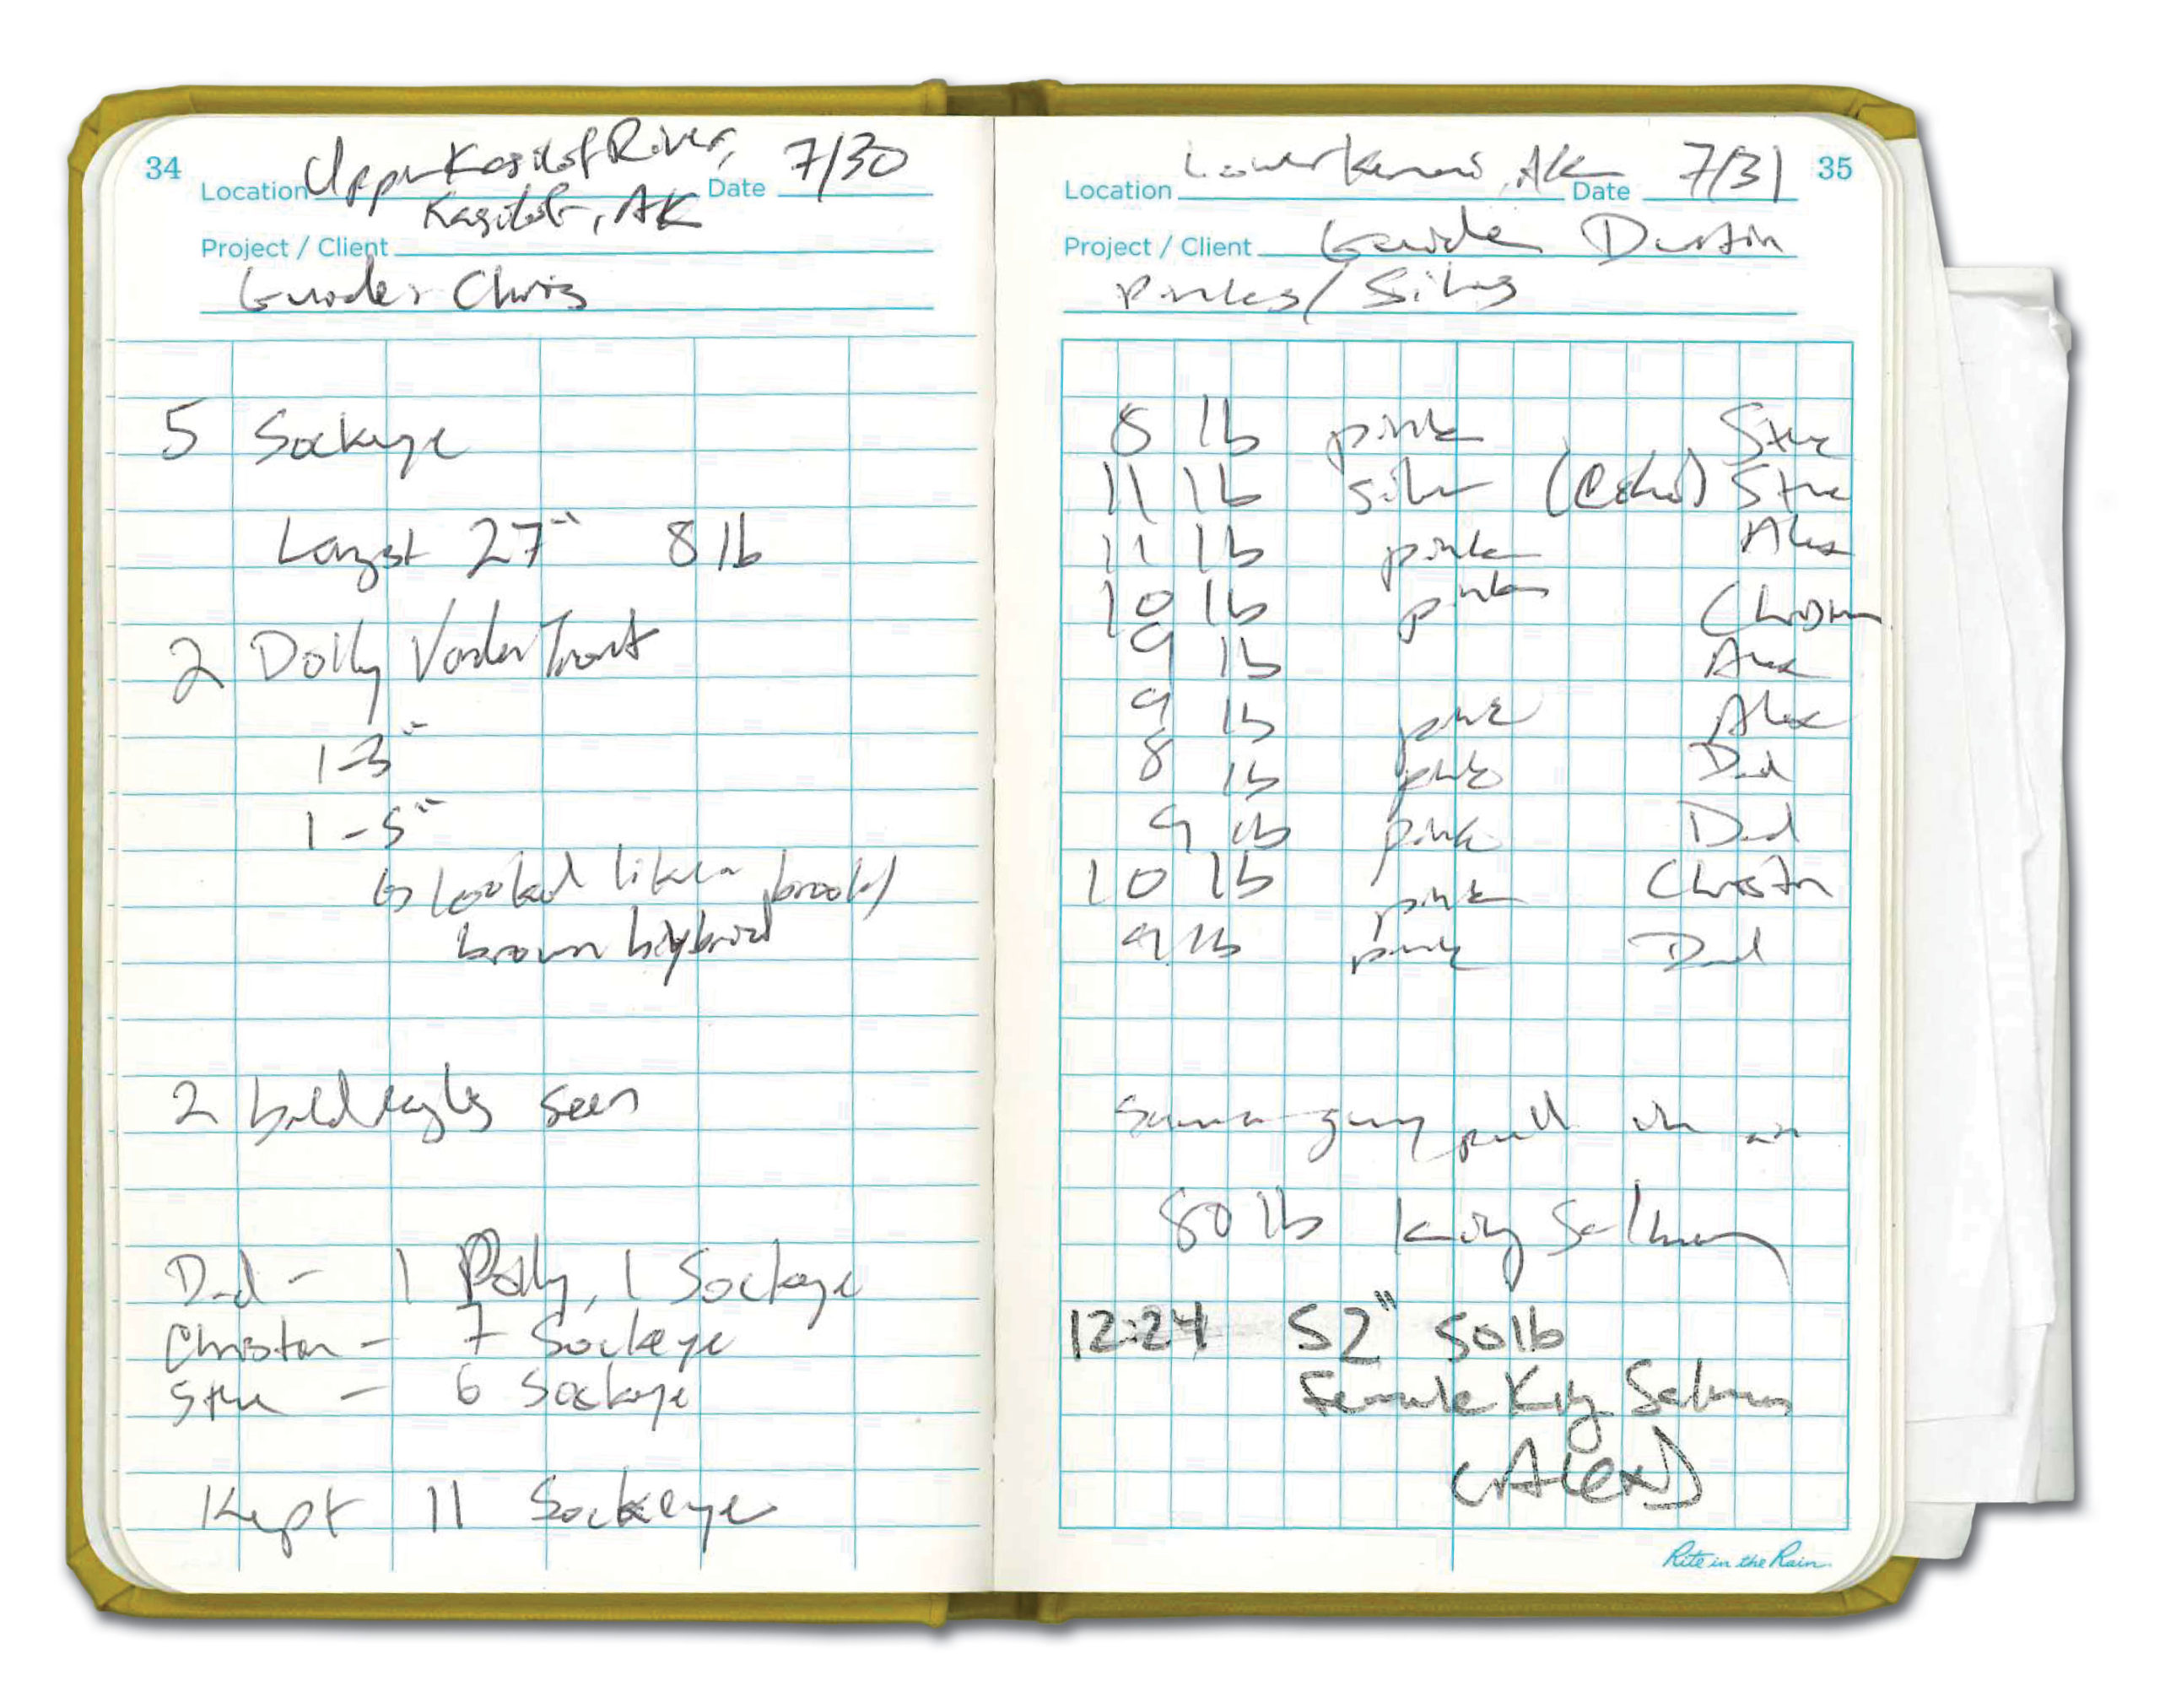 34
Upper Kasilof River, 7/30
Location Date
Kasilof, AK
Project / Client
Guide: Chris
5 Sockeye
Largest 27" 8 lb
2 Dolly Varden Trout
1-3"
1-5"
looked like a brook/
brown hybrid
2 bald eagles seen
Dad - 1 Dolly, 1 Sockeye
Christian - 7 Sockeye
Steve - 6 Sockeye
Kept 11 Sockeye
Lower Kenai, AK 7/31 35
Location Date
Project / Client Guide Dustin
Pinks / Silvers
8 lb pink Steve
11 lb silver (Coho) Steve
11 lb pink Alex
10 lb pink Christian
9 lb Alex
9 lb pink Alex
8 lb pink Dad
9 lb pink Dad
10 lb pink Christian
9 lb pink Dad
Saw a guy pull in an
80 lb King Salmon
12:24 52" 50lb
Female King Salmon
(ALEX)
Rite in the Rain